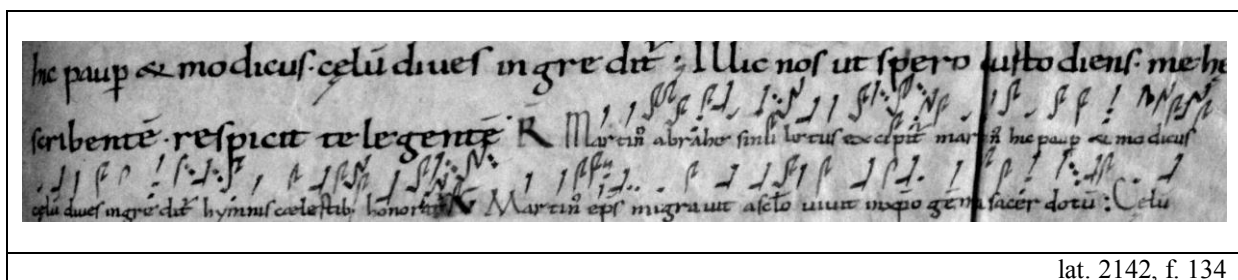 hic paup̄ & modicus· cęlū diues ingredit᷑ : Illic nos ut spero custodiens· me he
scribentē· respicit te legentē R̄ Martin᷒ abrahę sinu lętus excipit᷑ martin᷒ hic paup̄ & modicus
cęlū diues ingredit᷑ hymnis cęlestib; honorat᷑ R̄ Martin᷒ ep̄s migrauit a sc̄lo uiuit in xp̄o gēma sacerdotū : Celu
lat. 2142, f. 134